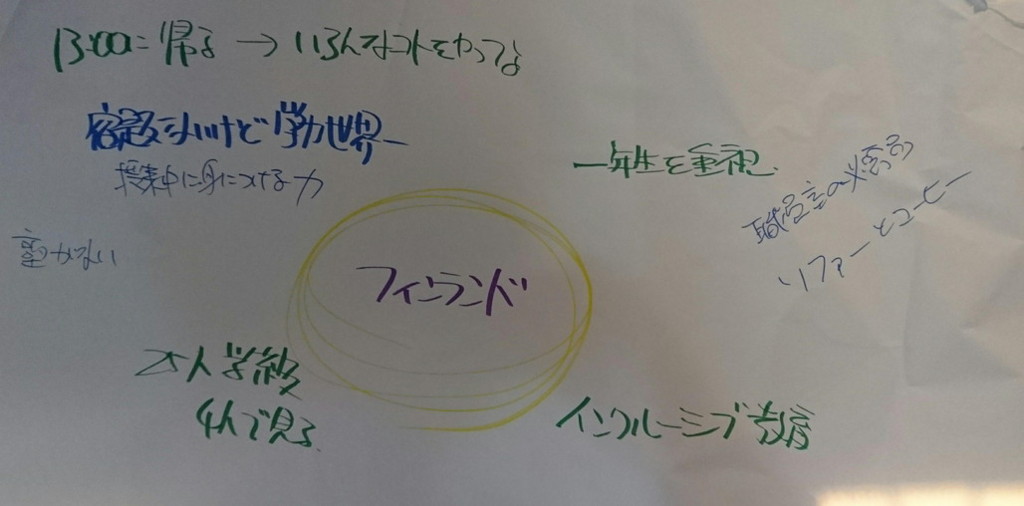 13:00=帰る → いろんなコトをやってる
宿題ないけど学力世界一
授業中に身につける力
一年生を重視
職員室の必需品
ソファーとコーヒー
塾がない
フィンランド
人学級
4人で見る
インクルーシブ教育